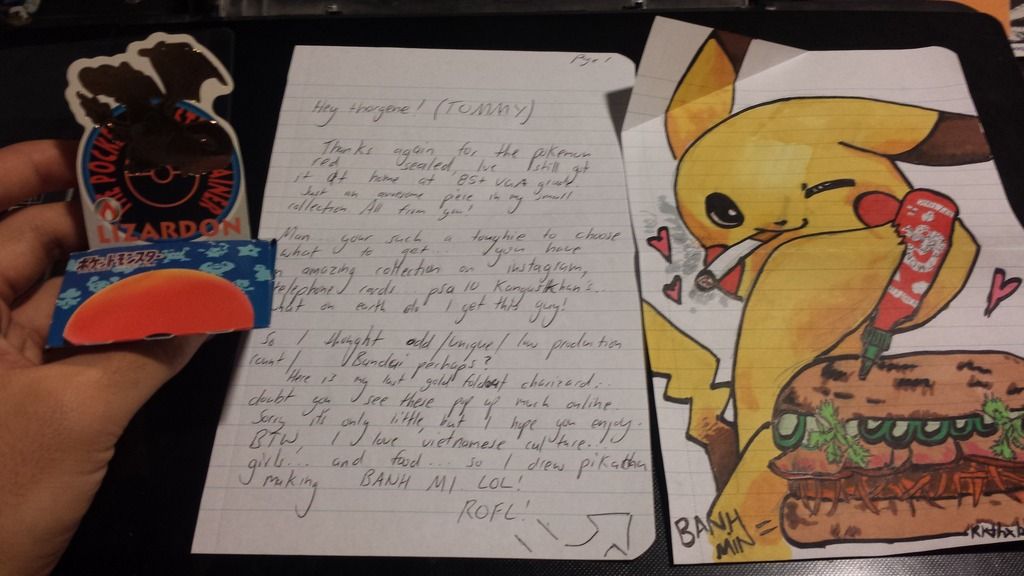 THE POCKET
LIZARDON
ポケットモンスター
Page 1
Hey thorgene! (TOMMY)
Thanks again for the pokemon
red sealed, Ive still got
it at home at 85+ VGA grade.
Just an awesome piece in my small
collection All from you!
Man.. your such a toughie to choose
what to get... you have
an amazing collection on instagram,
telephone cards... psa 10 Kangaskhan's...
what on earth do I get this guy!
So I thought odd/unique/low production
count/ Bandai perhaps?
Here is my last gold foldout charizard..
doubt you see these pop up much online.
Sorry its only little, but I hope you enjoy.
BTW, I love vietnamese culture.
girls... and food... so I drew pikachu
making BANH MI LOL!
ROFL!
BANH
MIN =